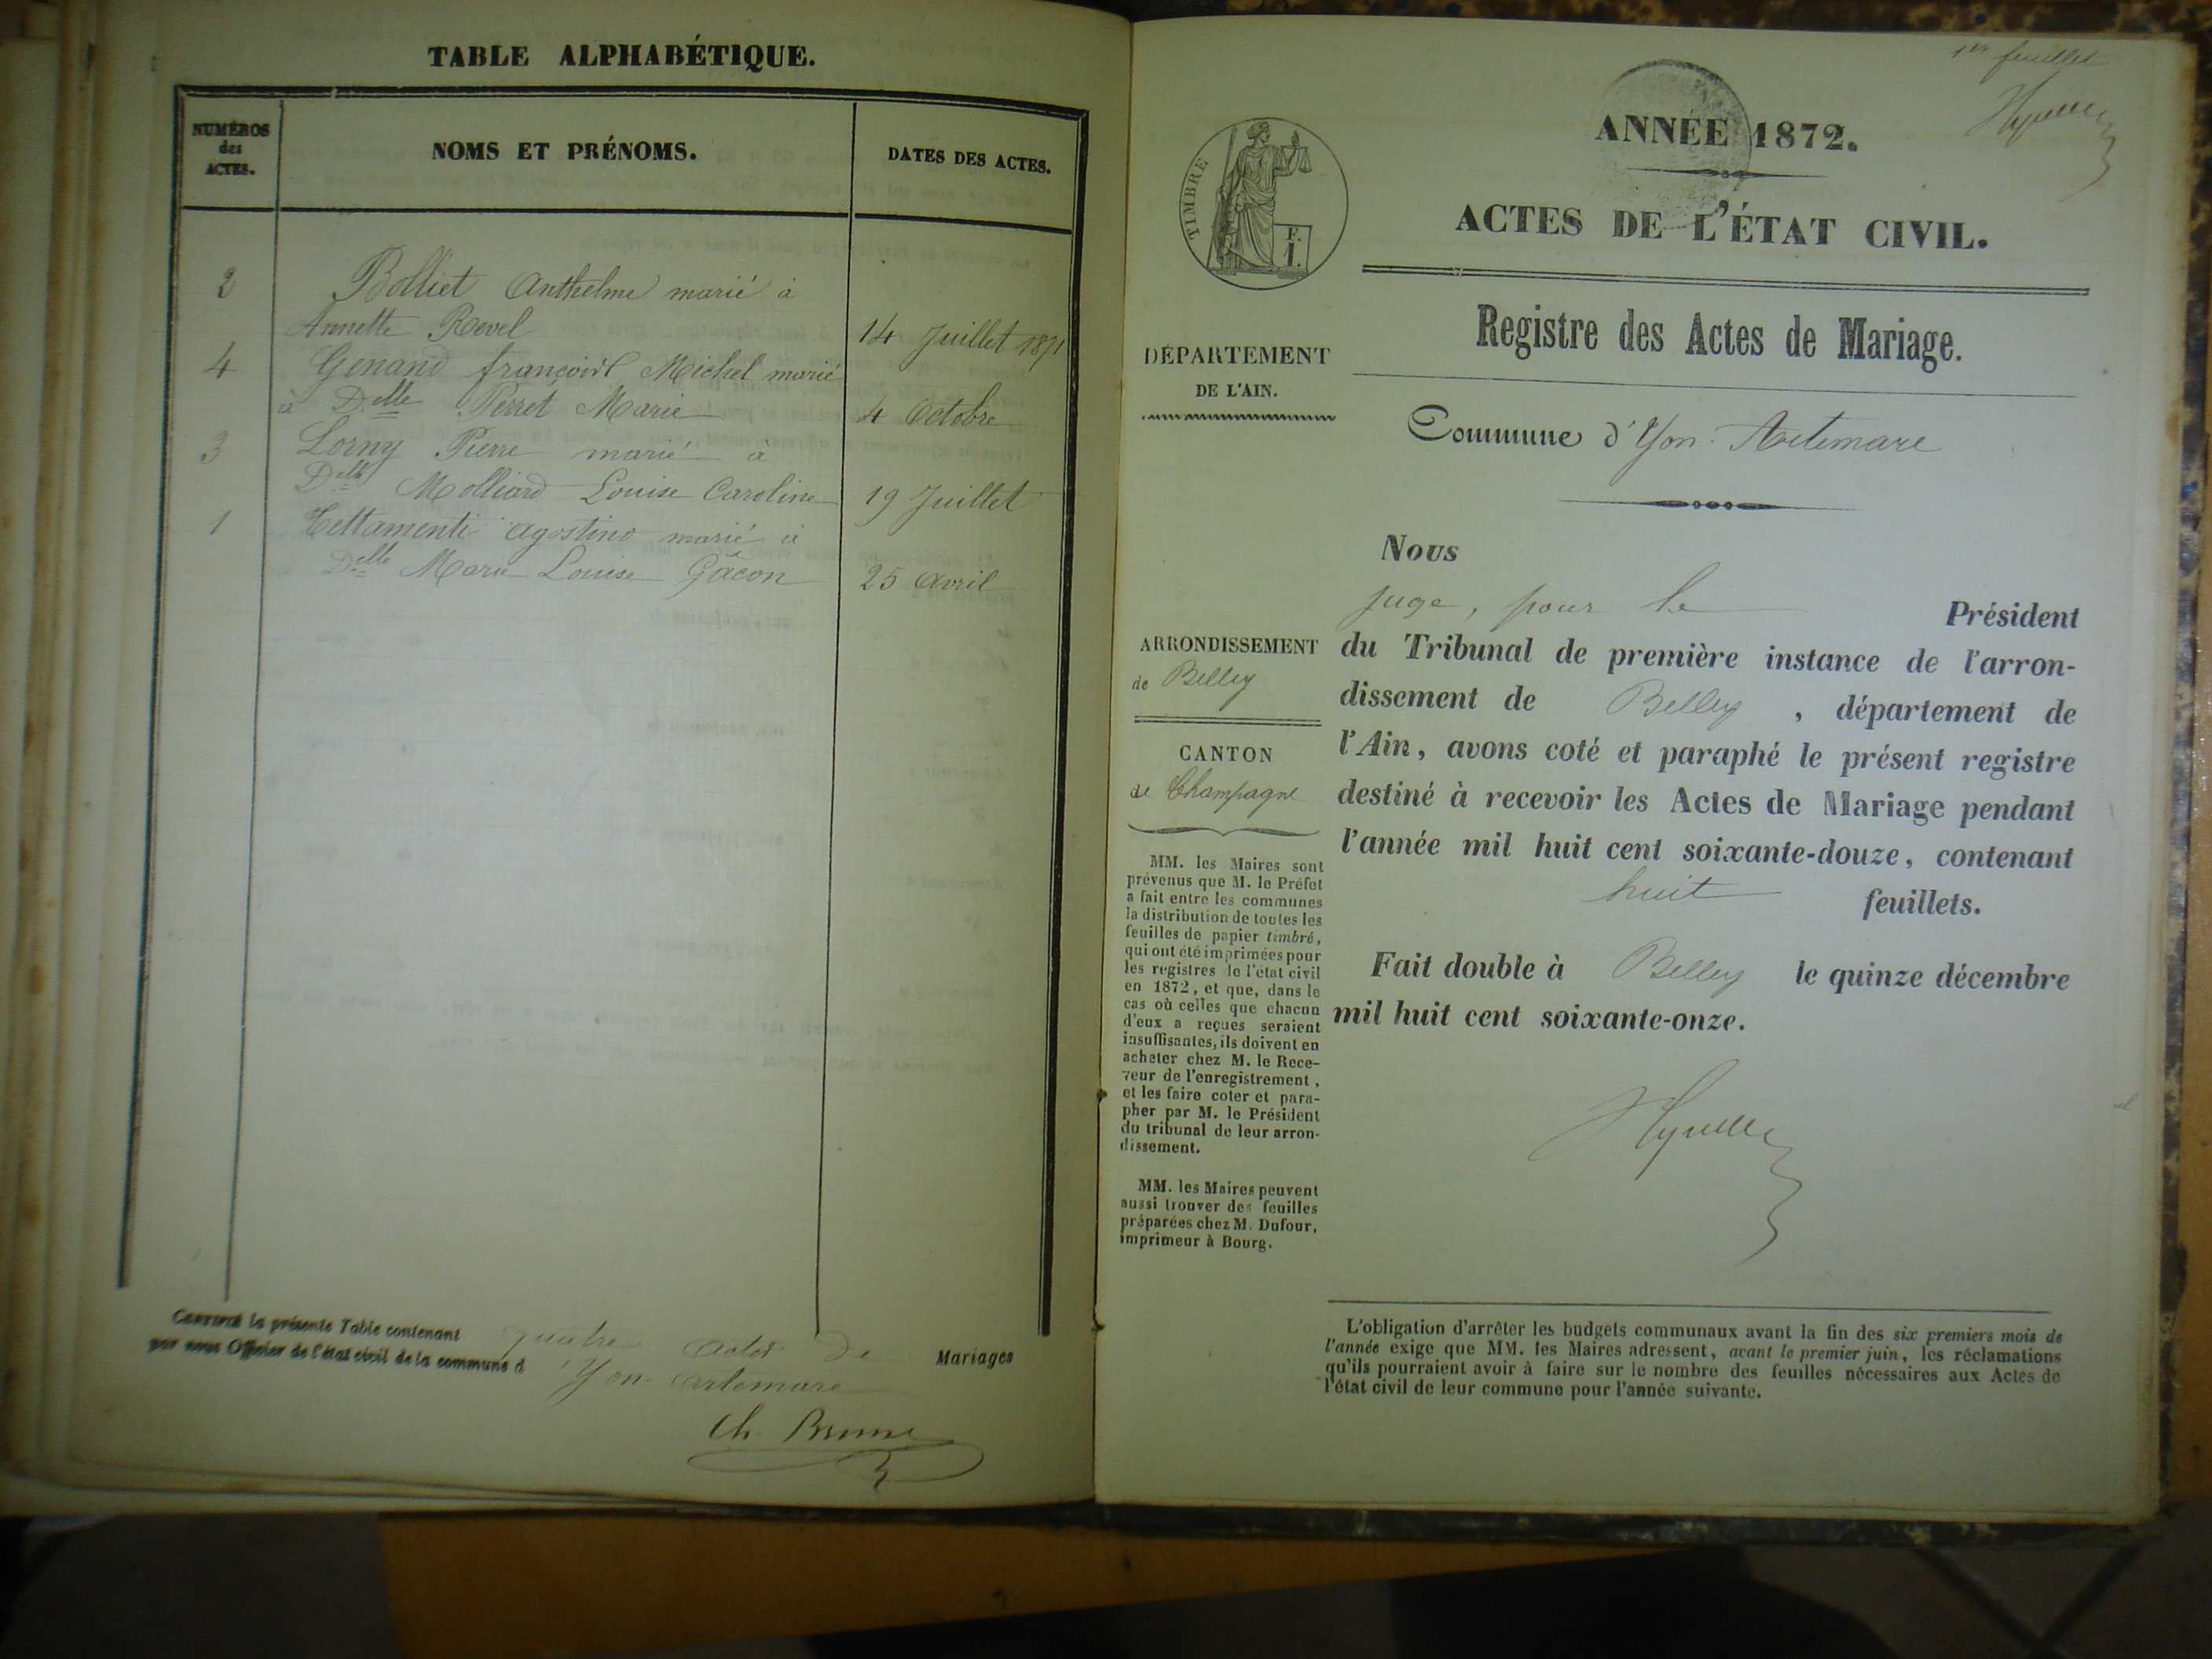 TABLE ALPHABÉTIQUE.
NUMÉROS
des
ACTES.
NOMS ET PRÉNOMS.
DATES DES ACTES.
2 Bolliet Anthelme marié à
Annette Revel 14 Juillet 1871
4 Genand Michel marié
à Delle Perret Marie 4 Octobre
3 Lorny Pierre marié à
Delle Molliard Louise Caroline 19 Juillet
1 Tettamenti Agostino marié à
Delle Marie Louise Gâcon 25 Avril
CERTIFIÉ la présente Table contenant quatre actes de Mariages
par nous Officier de l'état civil de la commune d'Yon-Artemare
Ch. Brune
1er feuillet
ANNÉE 1872.
ACTES DE L'ÉTAT CIVIL.
TIMBRE
F.
I.
Registre des Actes de Mariage.
DÉPARTEMENT
DE L'AIN.
Commune d'Yon-Artemare
ARRONDISSEMENT
de Belley
CANTON
de Champagne
MM. les Maires sont
prévenus que M. le Préfet
a fait entre les communes
la distribution de toutes les
feuilles de papier timbré,
qui ont été imprimées pour
les registres de l'état civil
en 1872, et que, dans le
cas où celles que chacun
d'eux a reçues seraient
insuffisantes, ils doivent en
acheter chez M. le Rece-
veur de l'enregistrement,
et les faire coter et para-
pher par M. le Président
du tribunal de leur arron-
dissement.
MM. les Maires peuvent
aussi trouver des feuilles
préparées chez M. Dufour,
imprimeur à Bourg.
Nous
juge, pour le Président
du Tribunal de première instance de l'arron-
dissement de Belley, département de
l'Ain, avons coté et paraphé le présent registre
destiné à recevoir les Actes de Mariage pendant
l'année mil huit cent soixante-douze, contenant
huit feuillets.
Fait double à Belley le quinze décembre
mil huit cent soixante-onze.
L'obligation d'arrêter les budgets communaux avant la fin des six premiers mois de
l'année exige que MM. les Maires adressent, avant le premier juin, les réclamations
qu'ils pourraient avoir à faire sur le nombre des feuilles nécessaires aux Actes de
l'état civil de leur commune pour l'année suivante.